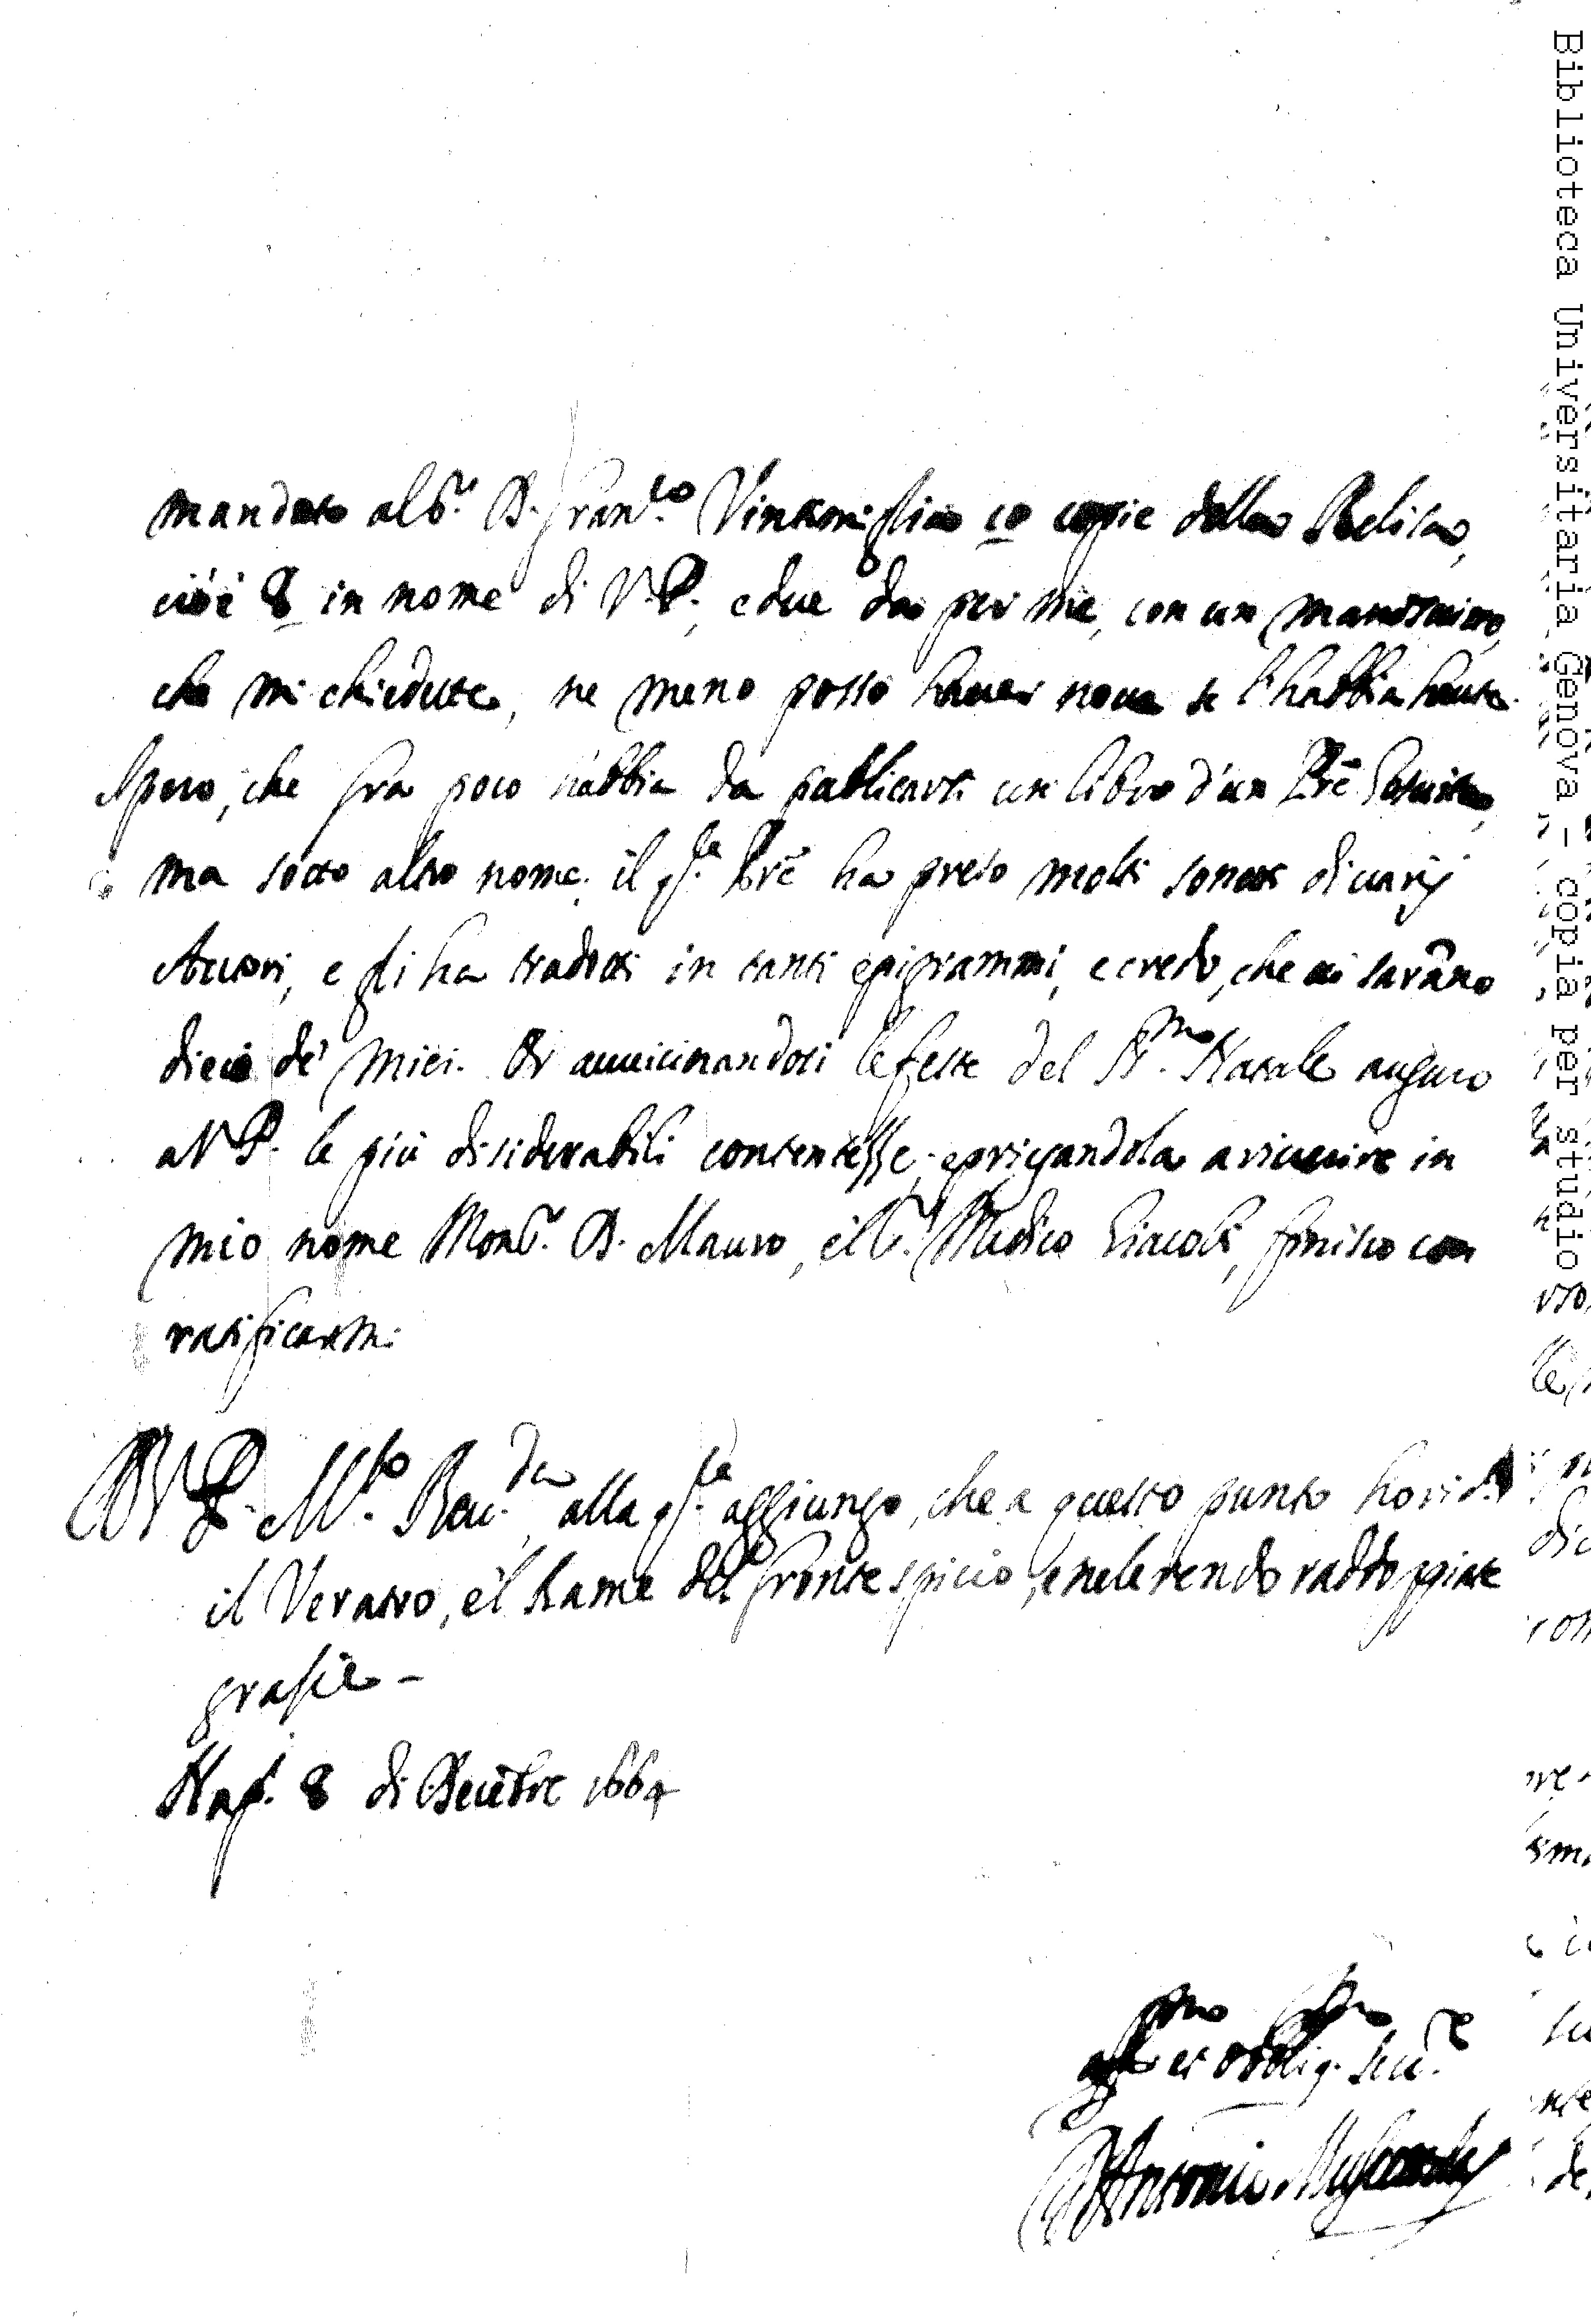 mandato al S.r D. Fran.co Vintimiglia 10 copie della Belisa,
cioè 8 in nome di V.P., e due da per me, con un manoscritto,
che mi chiedette, ne meno posso haver nova se l'habbia havute.
Spero, che fra poco habbia da publicarsi un libro d'un Prē Gesuita,
ma sotto altro nome; il p.te Prē ha preso molti sonetti di varij
Autori, e gli ha tradotti in tanti epigrammi, e credo, che vi sarāno
dieci de' miei. Or avvicinandosi le feste del S.mo Natale auguro
a V.P. le più disiderabili contentezze; e pregandola a riverire in
mio nome Mons.r D. Mauro, e'l S.r Medico Giacobi, finisco con
ratificarmi
D V.P. M.to Rev.da, alla p.te aggiungo, che a questo punto ho ric.to
il Veratro, e'l rame del frontespicio, e ne le rendo raddoppiate
grazie -
Nap. 8 di Decēbre 1664
aff.mo et oblig.mo Ser.re
D Antonio
Biblioteca Universitaria Genova - copia per studio